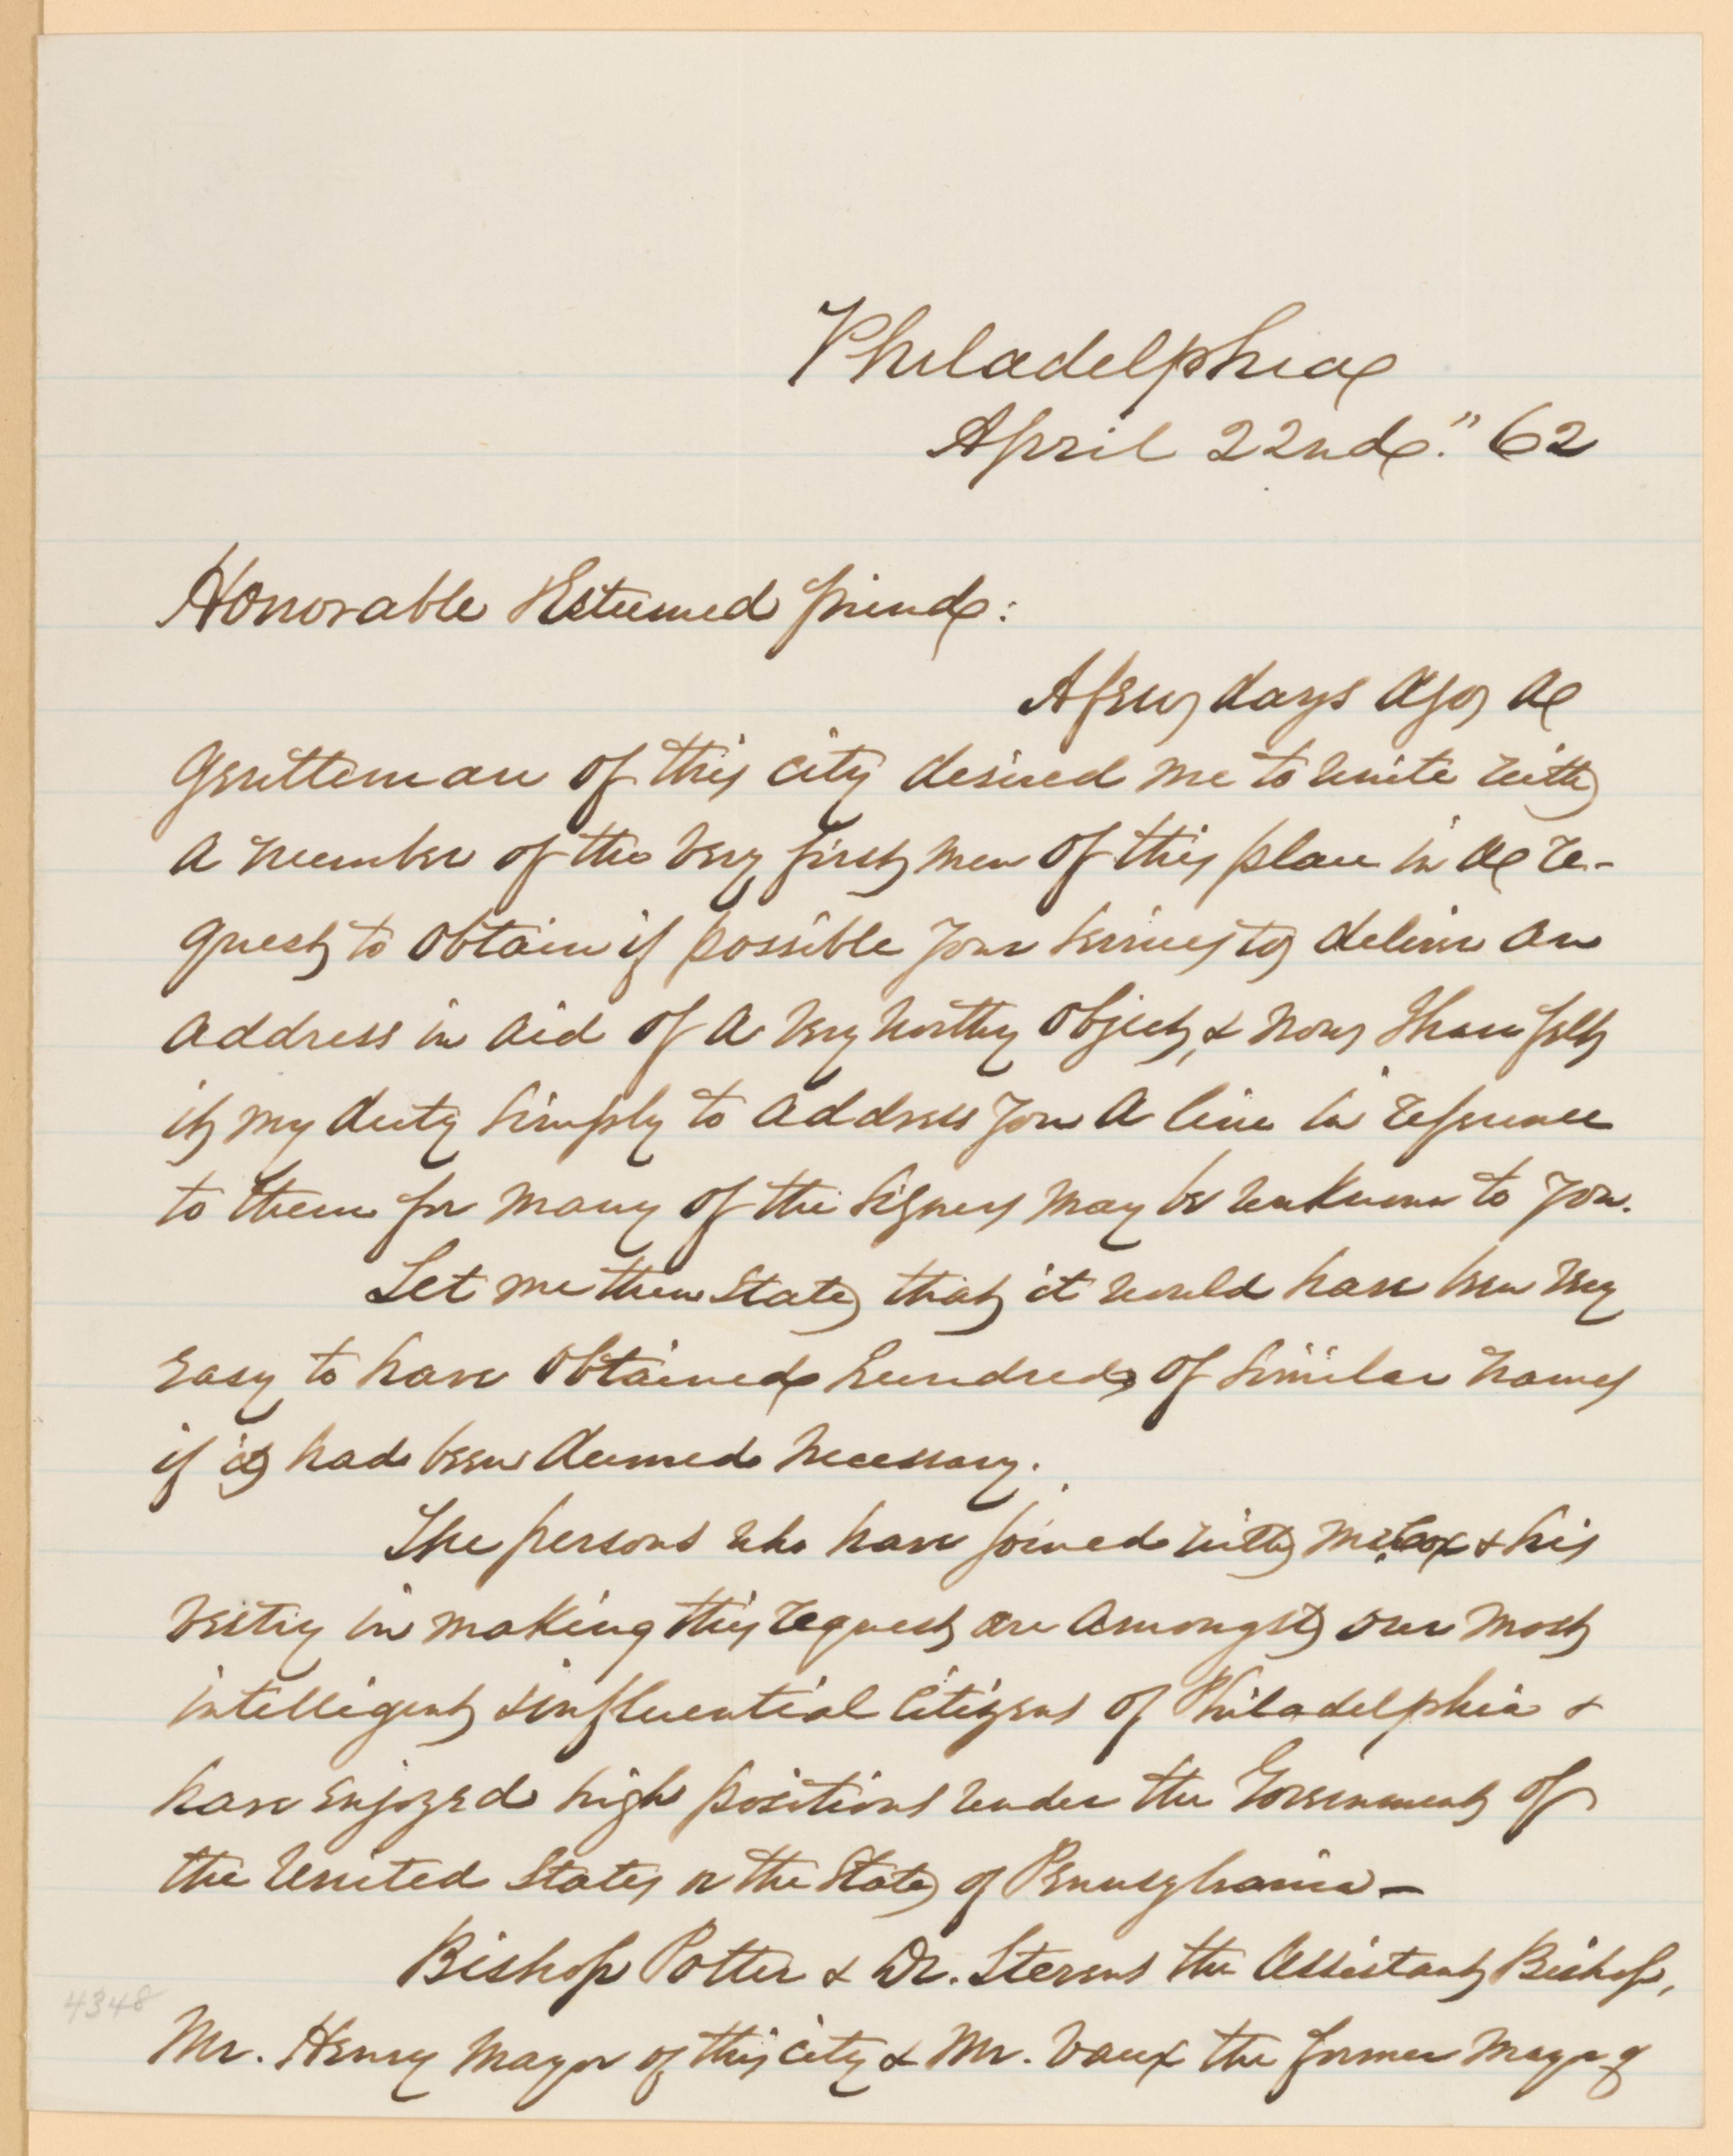 Philadelphia
April 22nd." 62
Honorable Esteemed friend:
A few days ago a
Gentleman of this city desired me to unite with
a number of the very first men of this place in a re-
quest to obtain if possible your services to deliver an
address in aid of a very worthy object, & now I have felt
it my duty simply to address you a line in reference
to them for many of the signers may be unknown to you.
Let me then state that it would have been very
easy to have obtained hundreds of similar names
if it had been deemed necessary.
The persons who have joined with Mr. Cox & his
vestry in making this request are amongst our most
intelligent & influential citizens of Philadelphia &
have enjoyed high positions under the Government of
the United States or the State of Pennsylvania —
Bishop Potter & Dr. Stevens the Assistant Bishop,
Mr. Henry Mayor of this city & Mr. Vaux the former Mayor of
4348